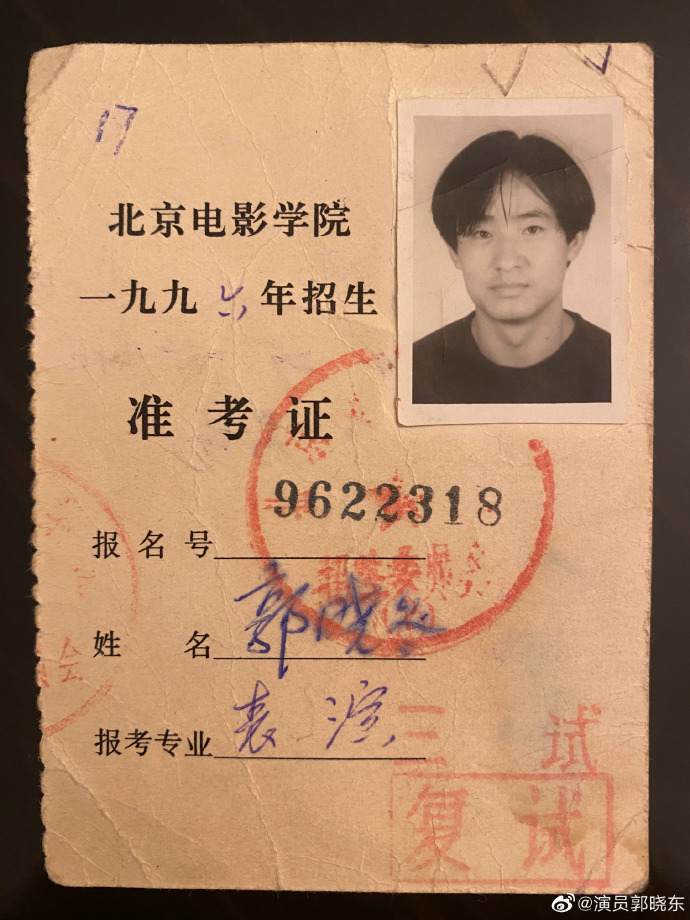 17
北京电影学院
一九九六年招生
准考证
9622318
报名号
姓名 郭晓东
报考专业 表演
三试
复试
@演员郭晓东